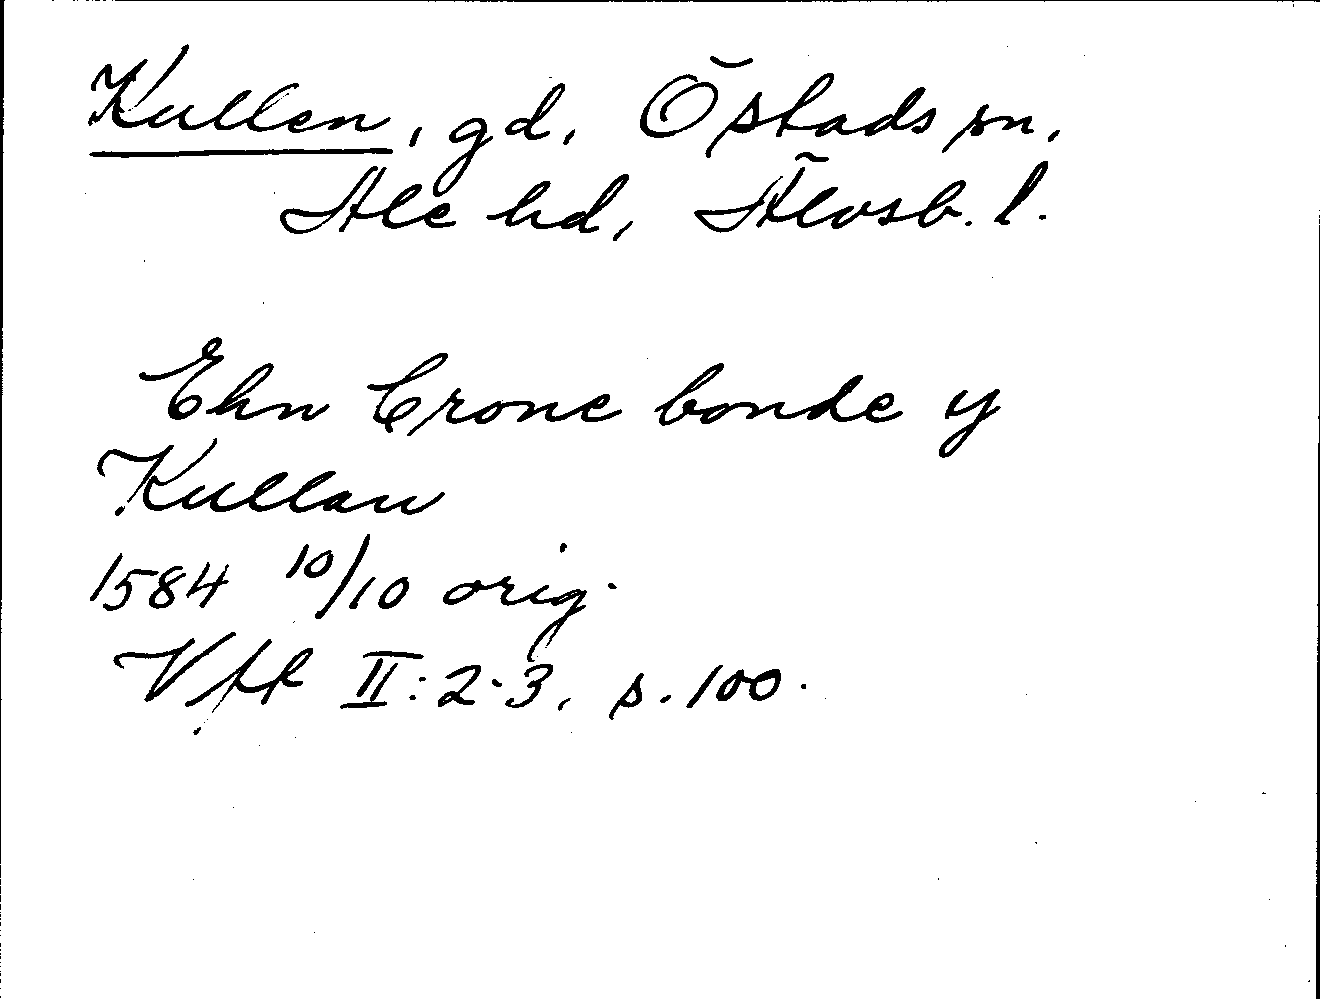 Kullen, gd, Östads sn,
Ale hd, Älvsb. l.
Ehn Crone bonde y
Kullan
1584 10/10 orig.
Vff II:2-3, s. 100.